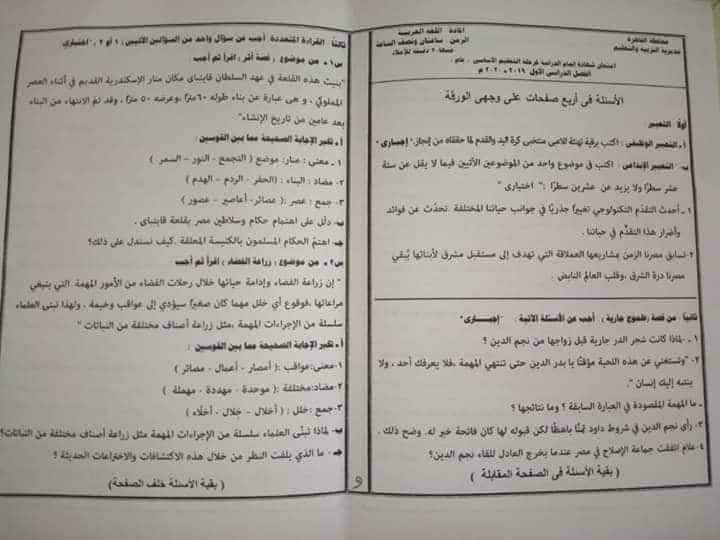 محافظة القاهرة
مديرية التربية والتعليم
المادة : اللغة العربية
الزمن : ساعتان ونصف الساعة
امتحان شهادة إتمام الدراسة لمرحلة التعليم الأساسى
الفصل الدراسى الأول ٢٠١٩ - ٢٠٢٠ م
الأسئلة فى أربع صفحات على وجهى الورقة
أولاً : التعبير
أ - التعبير الوظيفى : اكتب برقية تهنئة للاعبى منتخبى كرة اليد والقدم لما حققاه من إنجاز. " إجبارى "
ب- التعبير الإبداعى : اكتب في موضوع واحد من الموضوعين الآتيين فيما لا يقل عن ستة
عشر سطرًا ولا يزيد عن عشرين سطرًا : " اختيارى "
١ ـ أحدث التقدّم التكنولوجي تغييرًا جذريًا في جوانب حياتنا المختلفة .تحدّث عن فوائد
وأضرار هذا التقدّم في حياتنا .
٢-تسابق مصرنا الزمن بمشاريعها العملاقة التي تهدف إلى مستقبل مشرق لأبنائها يُبقي
مصرنا درة الشرق ، وقلب العالم النابض .
ثانيًا : من قصة (طموح جارية ) ، أجب عن الأسئلة الآتية : "إجبارى"
١ ـ لماذا كانت شجر الدر جارية قبل زواجها من نجم الدين ؟
٢- "وتستغني عن هذه اللحية مؤقتًا يا بدر الدين حتى تنتهي المهمة ،فلا يعرفك أحد ، ولا
ينتبه إليك إنسان ".
ـ ما المهمة المقصودة في العبارة السابقة ؟ وما نتائجها ؟
٣- رأى نجم الدين في شروط داود ثمنًا باهظًا لكن قبوله لها كان فاتحة خير له. وضح ذلك .
٤-علام اتفقت جماعة الإصلاح في مصر عندما يخرج العادل للقاء نجم الدين؟
( بقية الأسئلة فى الصفحة المقابلة )
ثالثًا : القراءة المتعددة أجب عن سؤال واحد من السؤالين الآتيين : ١ أو ٢ , " اختيارى
س١ ـ من موضوع , قصة أثر , اقرأ ثم أجب
"بنيت هذه القلعة في عهد السلطان قايتباى مكان منار الإسكندرية القديم في أثناء العصر
المملوكي ، و هى عبارة عن بناء طوله ٦٠مترًا ،وعرضه ٥٠ مترًا ، وقد تمّ الانتهاء من البناء
بعد عامين من تاريخ الإنشاء"
أ ـ تخير الإجابة الصحيحة مما بين القوسين :
١ ـ معنى : منار: موضع ( التجمع - النور – السمر )
٢- مضاد : البناء : (الحفر - الردم – الهدم )
٣- جمع : عصر :( عصائر- أعاصير – عصور )
ب- دلّل على اهتمام حكام وسلاطين مصر بقلعة قايتباى .
جـ- اهتمّ الحكام المسلمون بالكنيسة المعلقة .كيف نستدل على ذلك؟
س٢ ـ من موضوع : زراعة الفضاء : اقرأ ثم أجب
" إن زراعة الفضاء وإدامة حياتها خلال رحلات الفضاء من الأمور المهمة التي ينبغي
مراعاتها ،فوقوع أي خلل مهما كان صغيرًا سيؤدي إلى عواقب وخيمة . ولهذا تبنى العلماء
سلسلة من الإجراءات المهمة ،مثل زراعة أصناف مختلفة من النباتات "
أ ـ تخير الإجابة الصحيحة مما بين القوسين :
١-معنى:عواقب :( أمصار – أعمال – مصائر )
٢-مضاد:مختلفة :( موحدة – مهددة – مهملة )
٣-جمع: خلل : ( أخلال – خلال – أخلّاء )
ب- لماذا تبنّى العلماء سلسلة من الإجراءات المهمة مثل زراعة أصناف مختلفة من النباتات؟
جـ - ما الذي يلفت النظر من خلال هذه الاكتشافات والاختراعات الحديثة ؟
( بقية الأسئلة خلف الصفحة)